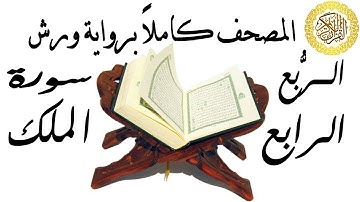 المصحف كاملاً برواية ورش
الربُّع سورة
الرابع الملك